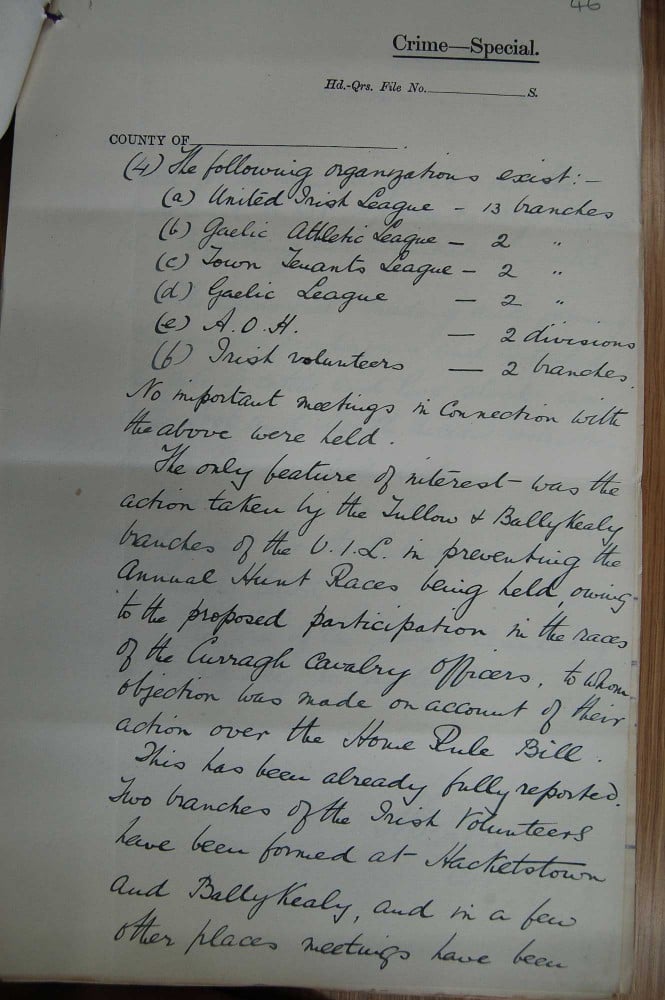 46
Crime—Special.
Hd.-Qrs. File No. S.
COUNTY OF
(4) The following organizations exist:-
(a) United Irish League - 13 branches
(b) Gaelic Athletic League - 2 "
(c) Town Tenants League - 2 "
(d) Gaelic League - 2 "
(e) A.O.H. - 2 divisions
(f) Irish volunteers - 2 branches.
No important meetings in connection with
the above were held.
The only feature of interest was the
action taken by the Tullow & BallyKealy
branches of the U.I.L. in preventing the
Annual Hunt Races being held, owing
to the proposed participation in the races
of the Curragh Cavalry Officers, to whom
objection was made on account of their
action over the Home Rule Bill.
This has been already fully reported.
Two branches of the Irish Volunteers
have been formed at Hacketstown
and BallyKealy, and in a few
other places meetings have been